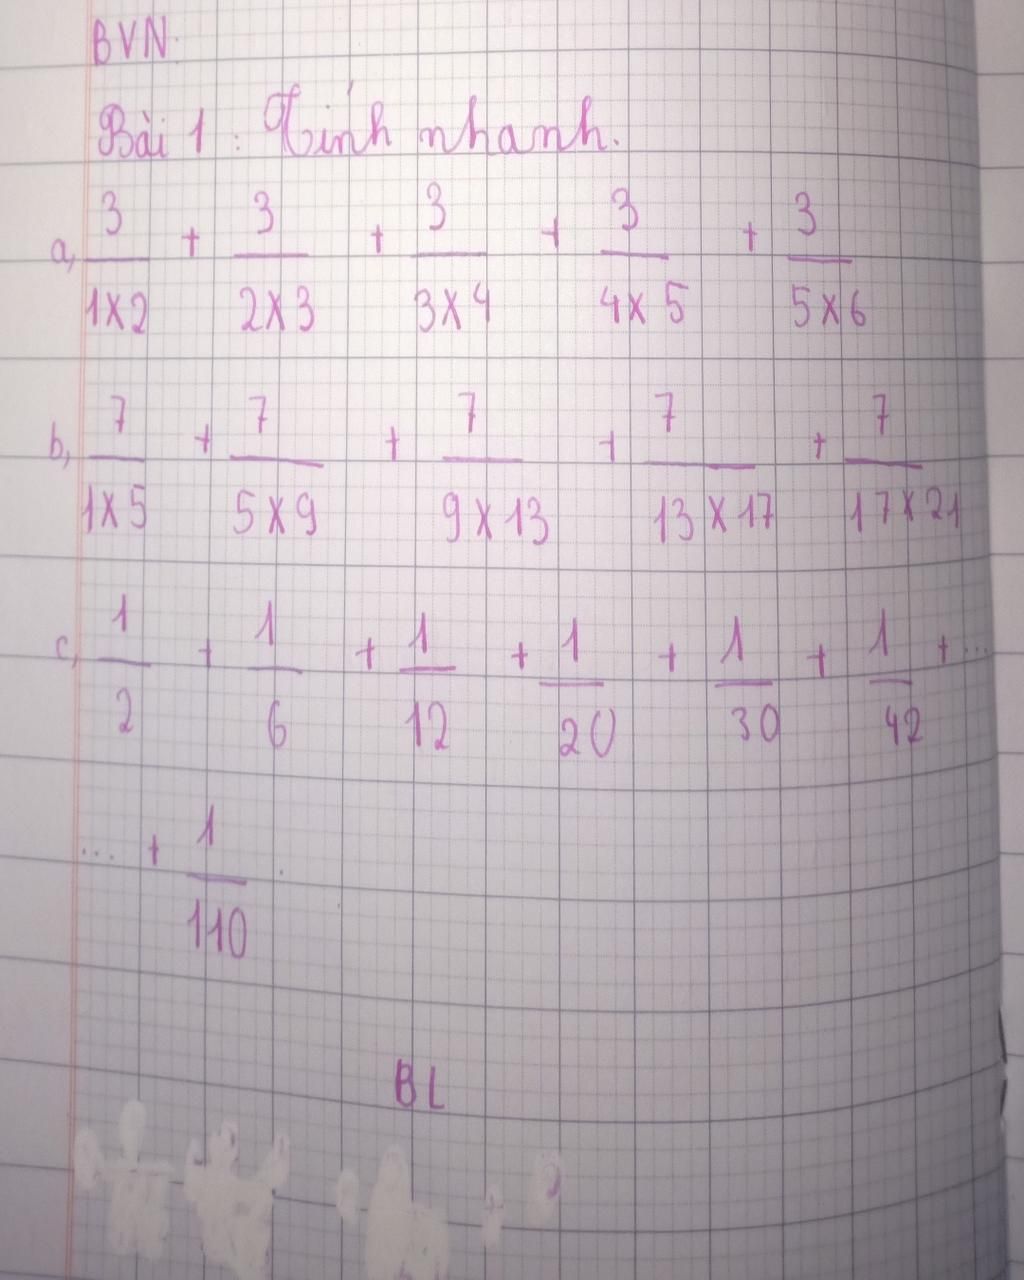 BVN.
Bài 1 : Tính nhanh.
a, 3/1x2 + 3/2x3 + 3/3x4 + 3/4x5 + 3/5x6
b, 7/1x5 + 7/5x9 + 7/9x13 + 7/13x17 + 7/17x21
c, 1/2 + 1/6 + 1/12 + 1/20 + 1/30 + 1/42 + ...
... + 1/110 .
BL